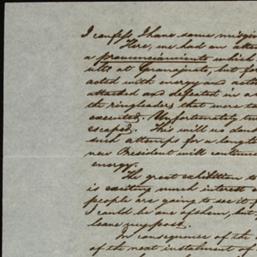 I confess I have some misgiv
Here, we had an attem
a pronunciamiento which
ults at Guanajuato, but for
acted with energy and acti
attacked and defeated in a
the ringleaders that were ta
executed. Unfortunately tw
escaped. This will no doub
such attempts for a long ti
new President will continue
energy.
The great exhibition to
is exciting much interest
people are going to see it f
I could be one of them, but
leave suppose.
In consequence of the
of the next instalment of